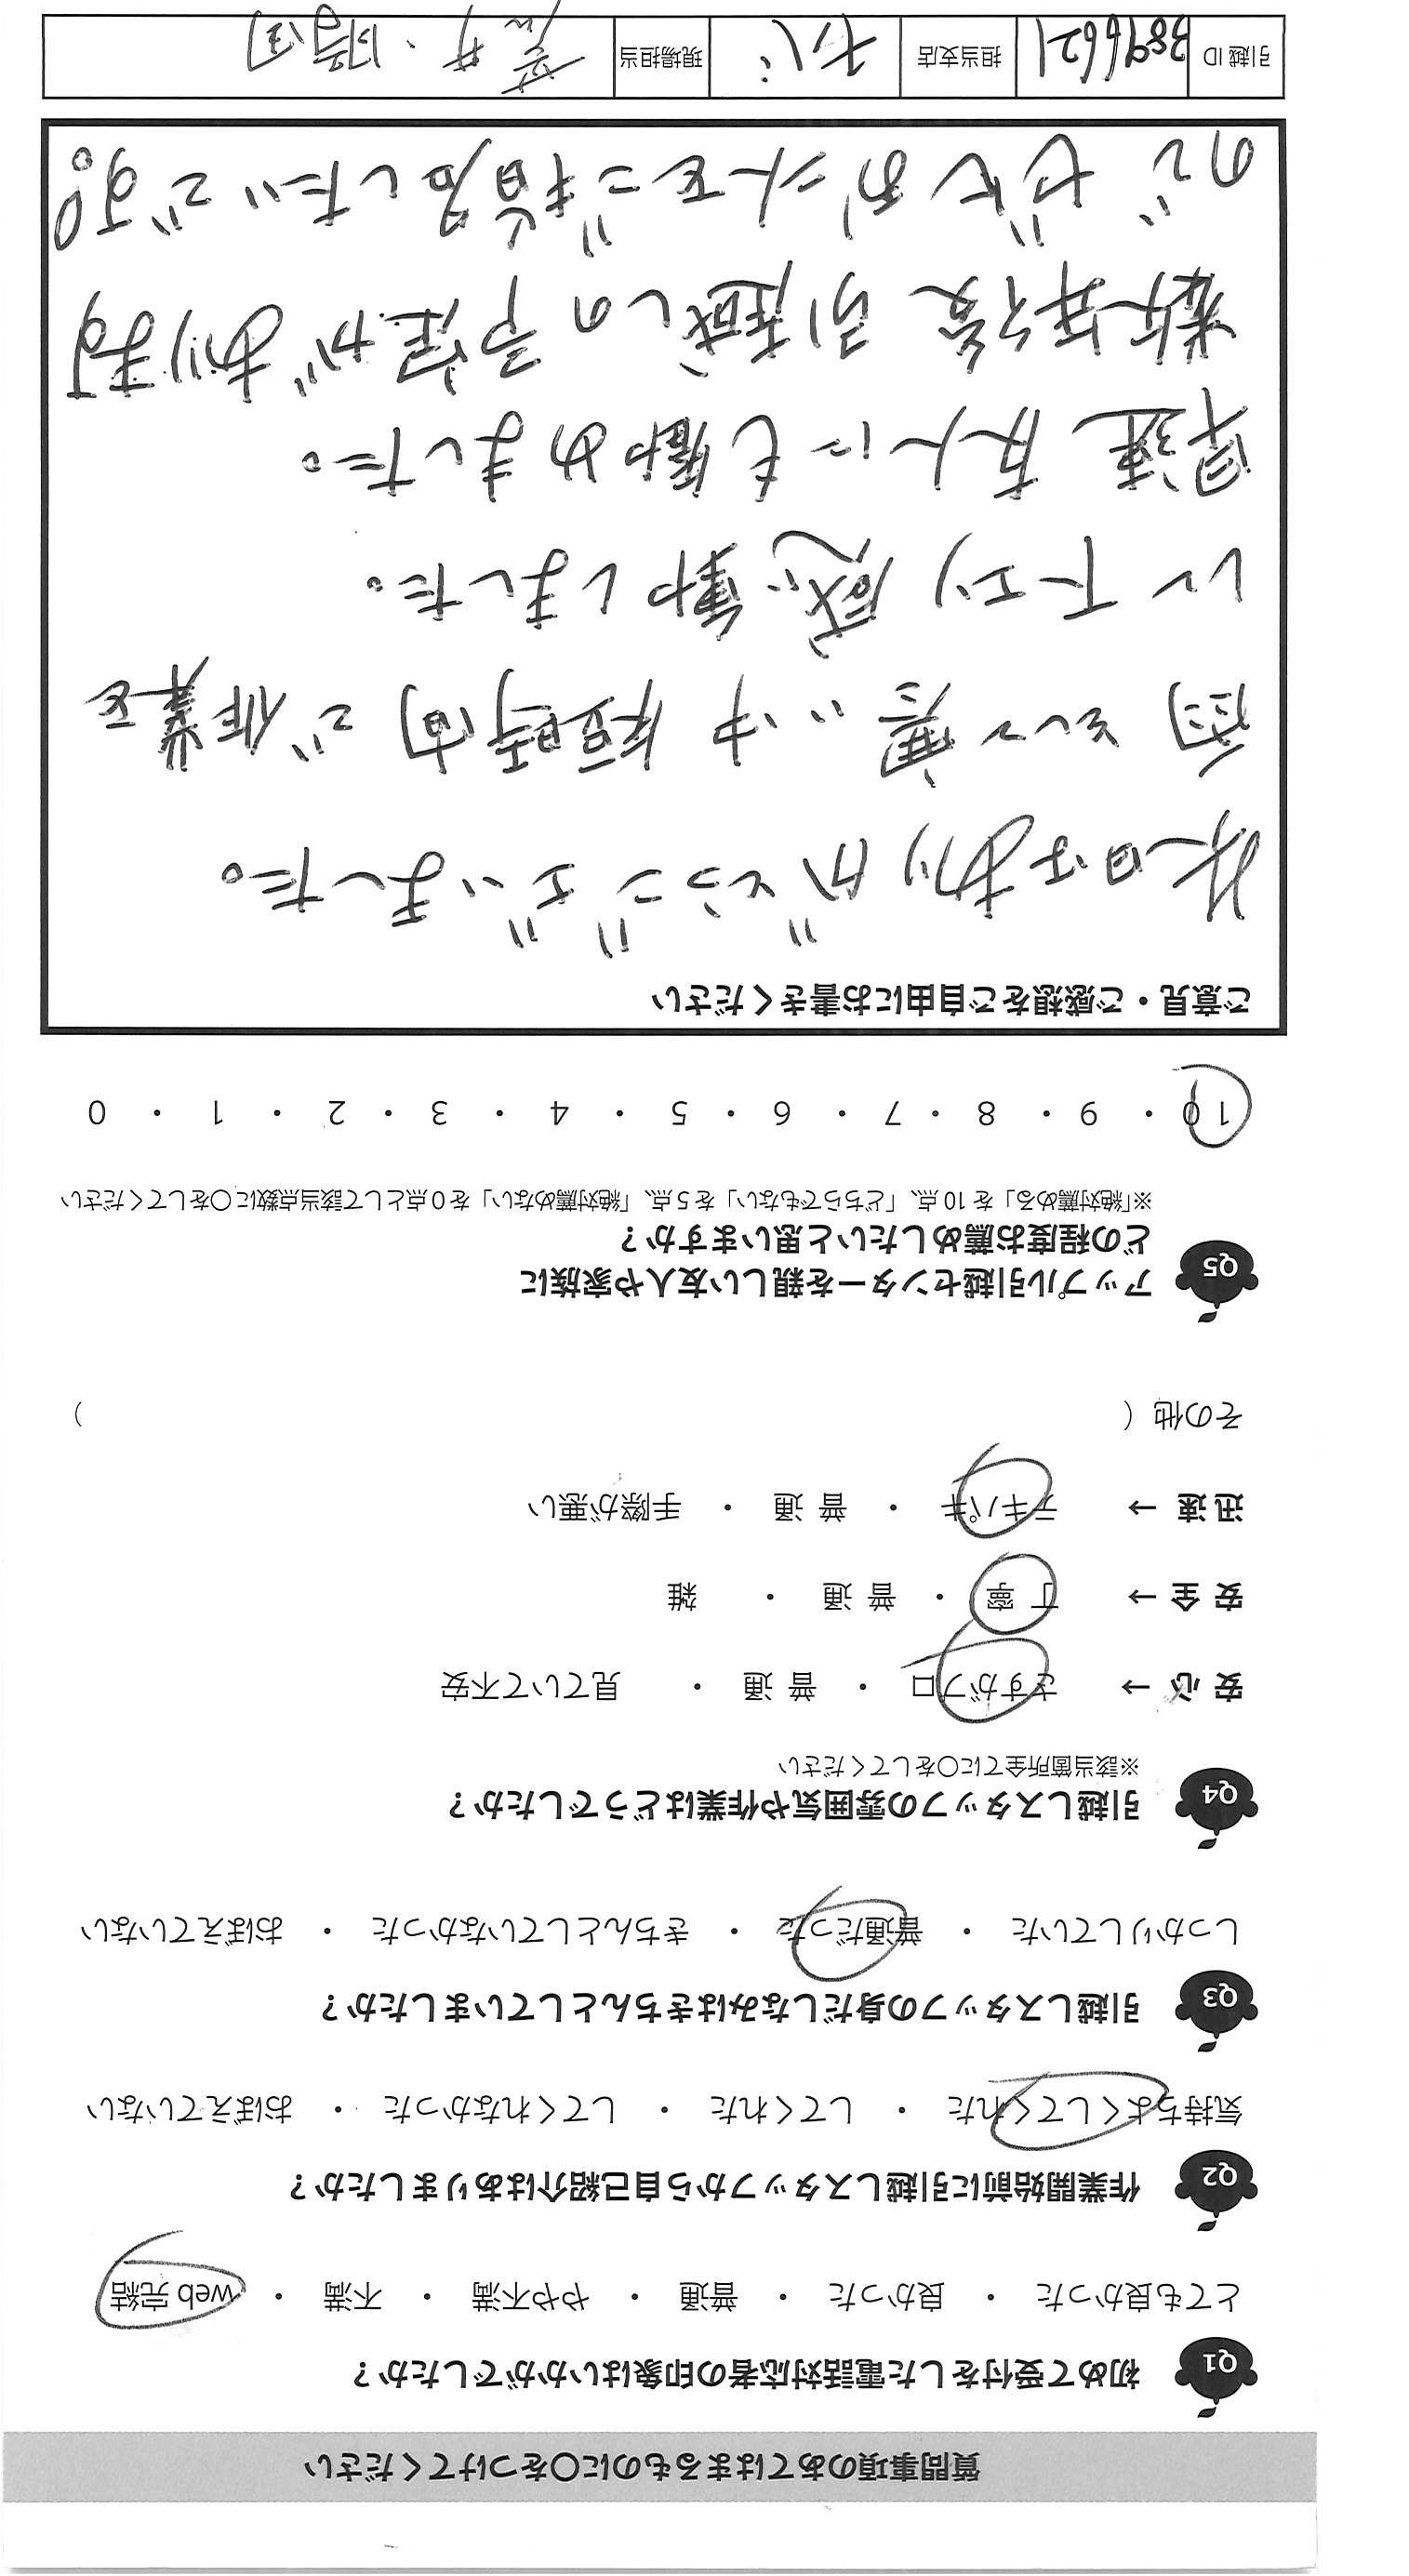 質問事項のあてはまるものに○をつけてください
Q1 初めて受付をした電話対応者の印象はいかがでしたか？
とても良かった ・ 良かった ・ 普通 ・ やや不満 ・ 不満 ・ web 完結
Q2 作業開始前に引越しスタッフから自己紹介はありましたか？
気持ちよくしてくれた ・ してくれた ・ してくれなかった ・ おぼえていない
Q3 引越しスタッフの身だしなみはきちんとしていましたか？
しっかりしていた ・ 普通だった ・ きちんとしていなかった ・ おぼえていない
Q4 引越しスタッフの雰囲気や作業はどうでしたか？
※該当箇所全てに○をしてください
安 心 → さすがプロ ・ 普 通 ・ 見ていて不安
安 全 → 丁 寧 ・ 普 通 ・ 雑
迅 速 → テキパキ ・ 普 通 ・ 手際が悪い
その他（ ）
Q5 アップル引越センターを親しい友人や家族に
どの程度お薦めしたいと思いますか？
※「絶対薦める」を 10 点、「どちらでもない」を 5 点、「絶対薦めない」を 0 点として該当点数に○をしてください
10 ・ 9 ・ 8 ・ 7 ・ 6 ・ 5 ・ 4 ・ 3 ・ 2 ・ 1 ・ 0
ご意見・ご感想をご自由にお書きください
本日はありがとうございました。
雨という悪い中 短時間で作業を
いて下さり感動しました。
早速 友人にも勧めました。
数年後 引越しの予定があります
のでぜひお二人をご指名したいです。
引越 ID 3896621 担当支店 チバ 現場担当